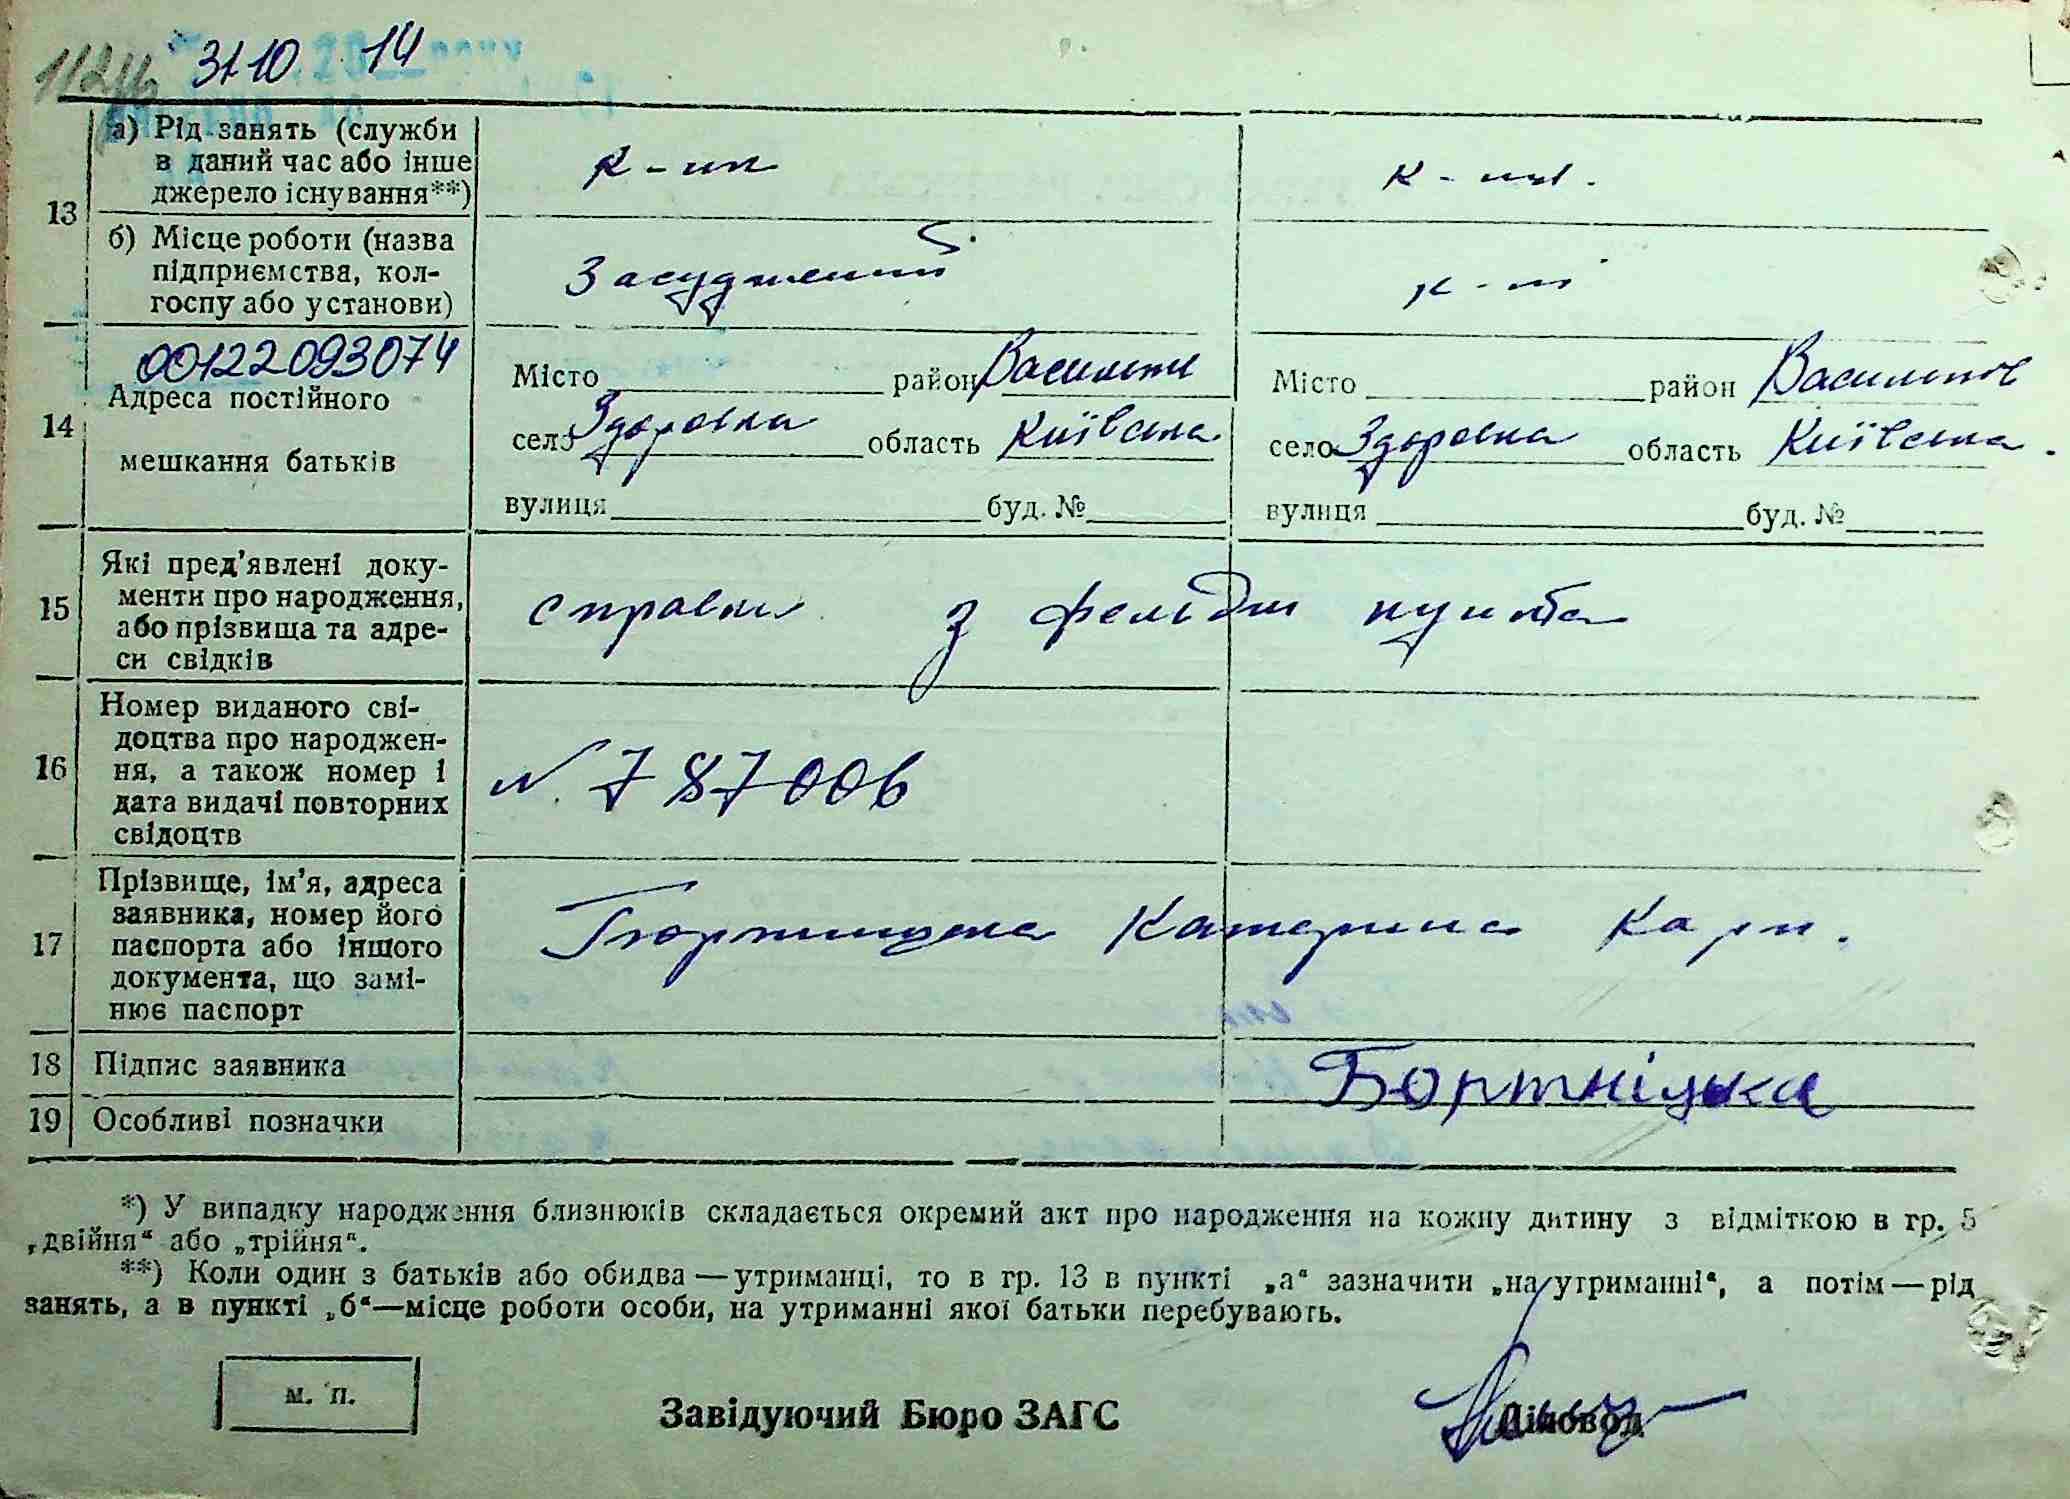 31 10 14
а) Рід занять (служби
в даний час або інше
джерело існування**)
к-ик
к-ця.
13
б) Місце роботи (назва
підприємства, кол-
госпу або установи)
Засуджений
к-п
00122093074
14
Адреса постійного
мешкання батьків
Місто район Васильків
село Здорівка область Київська
вулиця буд. №
Місто район Васильків
село Здорівка область Київська.
вулиця буд. №
15
Які пред'явлені доку-
менти про народження,
або прізвища та адре-
си свідків
справки з фельдш пункта
16
Номер виданого сві-
доцтва про народжен-
ня, а також номер і
дата видачі повторних
свідоцтв
N. 787006
17
Прізвище, ім'я, адреса
заявника, номер його
паспорта або іншого
документа, що замі-
нює паспорт
Бортницька Катерина Карп.
18 Підпис заявника
Бортніцька
19 Особливі позначки
*) У випадку народження близнюків складається окремий акт про народження на кожну дитину з відміткою в гр. 5
„двійня“ або „трійня“.
**) Коли один з батьків або обидва — утриманці, то в гр. 13 в пункті „а“ зазначити „на утриманні“, а потім — рід
занять, а в пункті „б“—місце роботи особи, на утриманні якої батьки перебувають.
М. П.
Завідуючий Бюро ЗАГС
Діловод